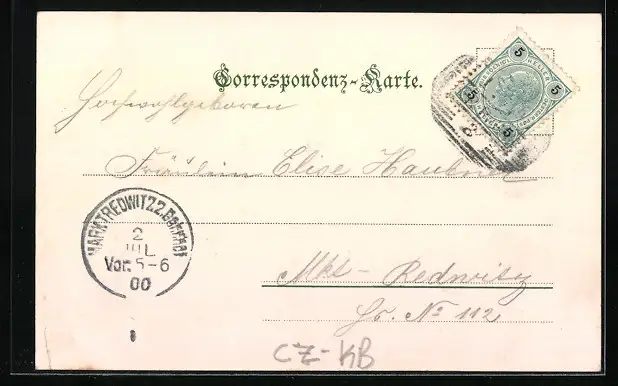 Correspondenz-Karte.
Hochwohlgeboren
Fräulein Elise Haubner
Mkt-Redwitz
Hs. No 112
MARKTREDWITZ 2.
2
JUL
Vor. 5-6
00
5
5
5
5
HELLER
CZ-KB